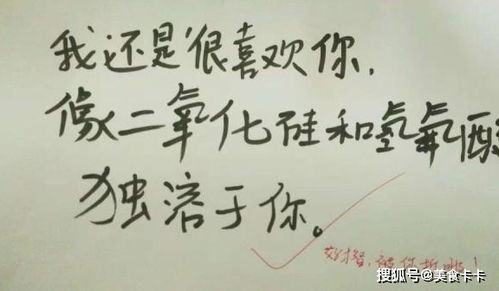 我还是很喜欢你,
像二氧化硅和氢氟酸
独溶于你。
搜狐号@美食卡卡